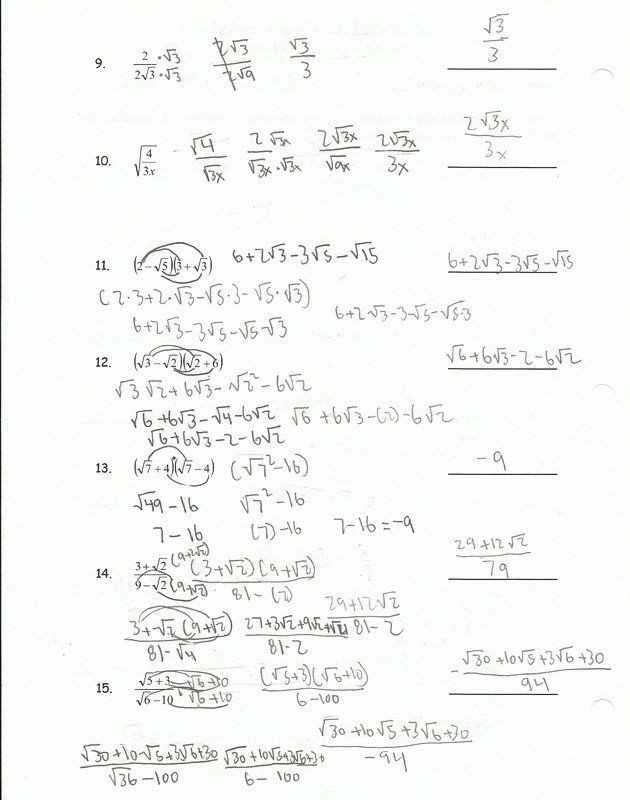 9. 2/2√3 · √3/√3 2√3/2√9 √3/3 √3/3
10. √(4/3x) √4/√3x 2√3x/√3x·√3x 2√3x/√9x 2√3x/3x 2√3x/3x
11. (2-√5)(3+√3) 6+2√3-3√5-√15 6+2√3-3√5-√15
(2·3+2·√3-√5·3-√5·√3)
6+2√3-3√5-√5·√3 6+2√3-3√5-√5·3
12. (√3-√2)(√2+6) √6+6√3-2-6√2
√3 √2+6√3-√2²-6√2
√6+6√3-√4-6√2 √6+6√3-(2)-6√2
√6+6√3-2-6√2
13. (√7+4)(√7-4) (√7²-16) -9
√49-16 √7²-16
7-16 (7)-16 7-16=-9
14. 3+√2/9-√2 (9+√2)/(9+√2) (3+√2)(9+√2)/81-(2) 29+12√2/79
3+√2(9+√2)/81-√4 27+3√2+9√2+√4/81-2 29+12√2/81-2
15. √5+3/√6-10 · √6+10/√6+10 (√5+3)(√6+10)/6-100 -√30+10√5+3√6+30/94
√30+10√5+3√6+30/√36-100 √30+10√5+3√6+30/6-100 √30+10√5+3√6+30/-94